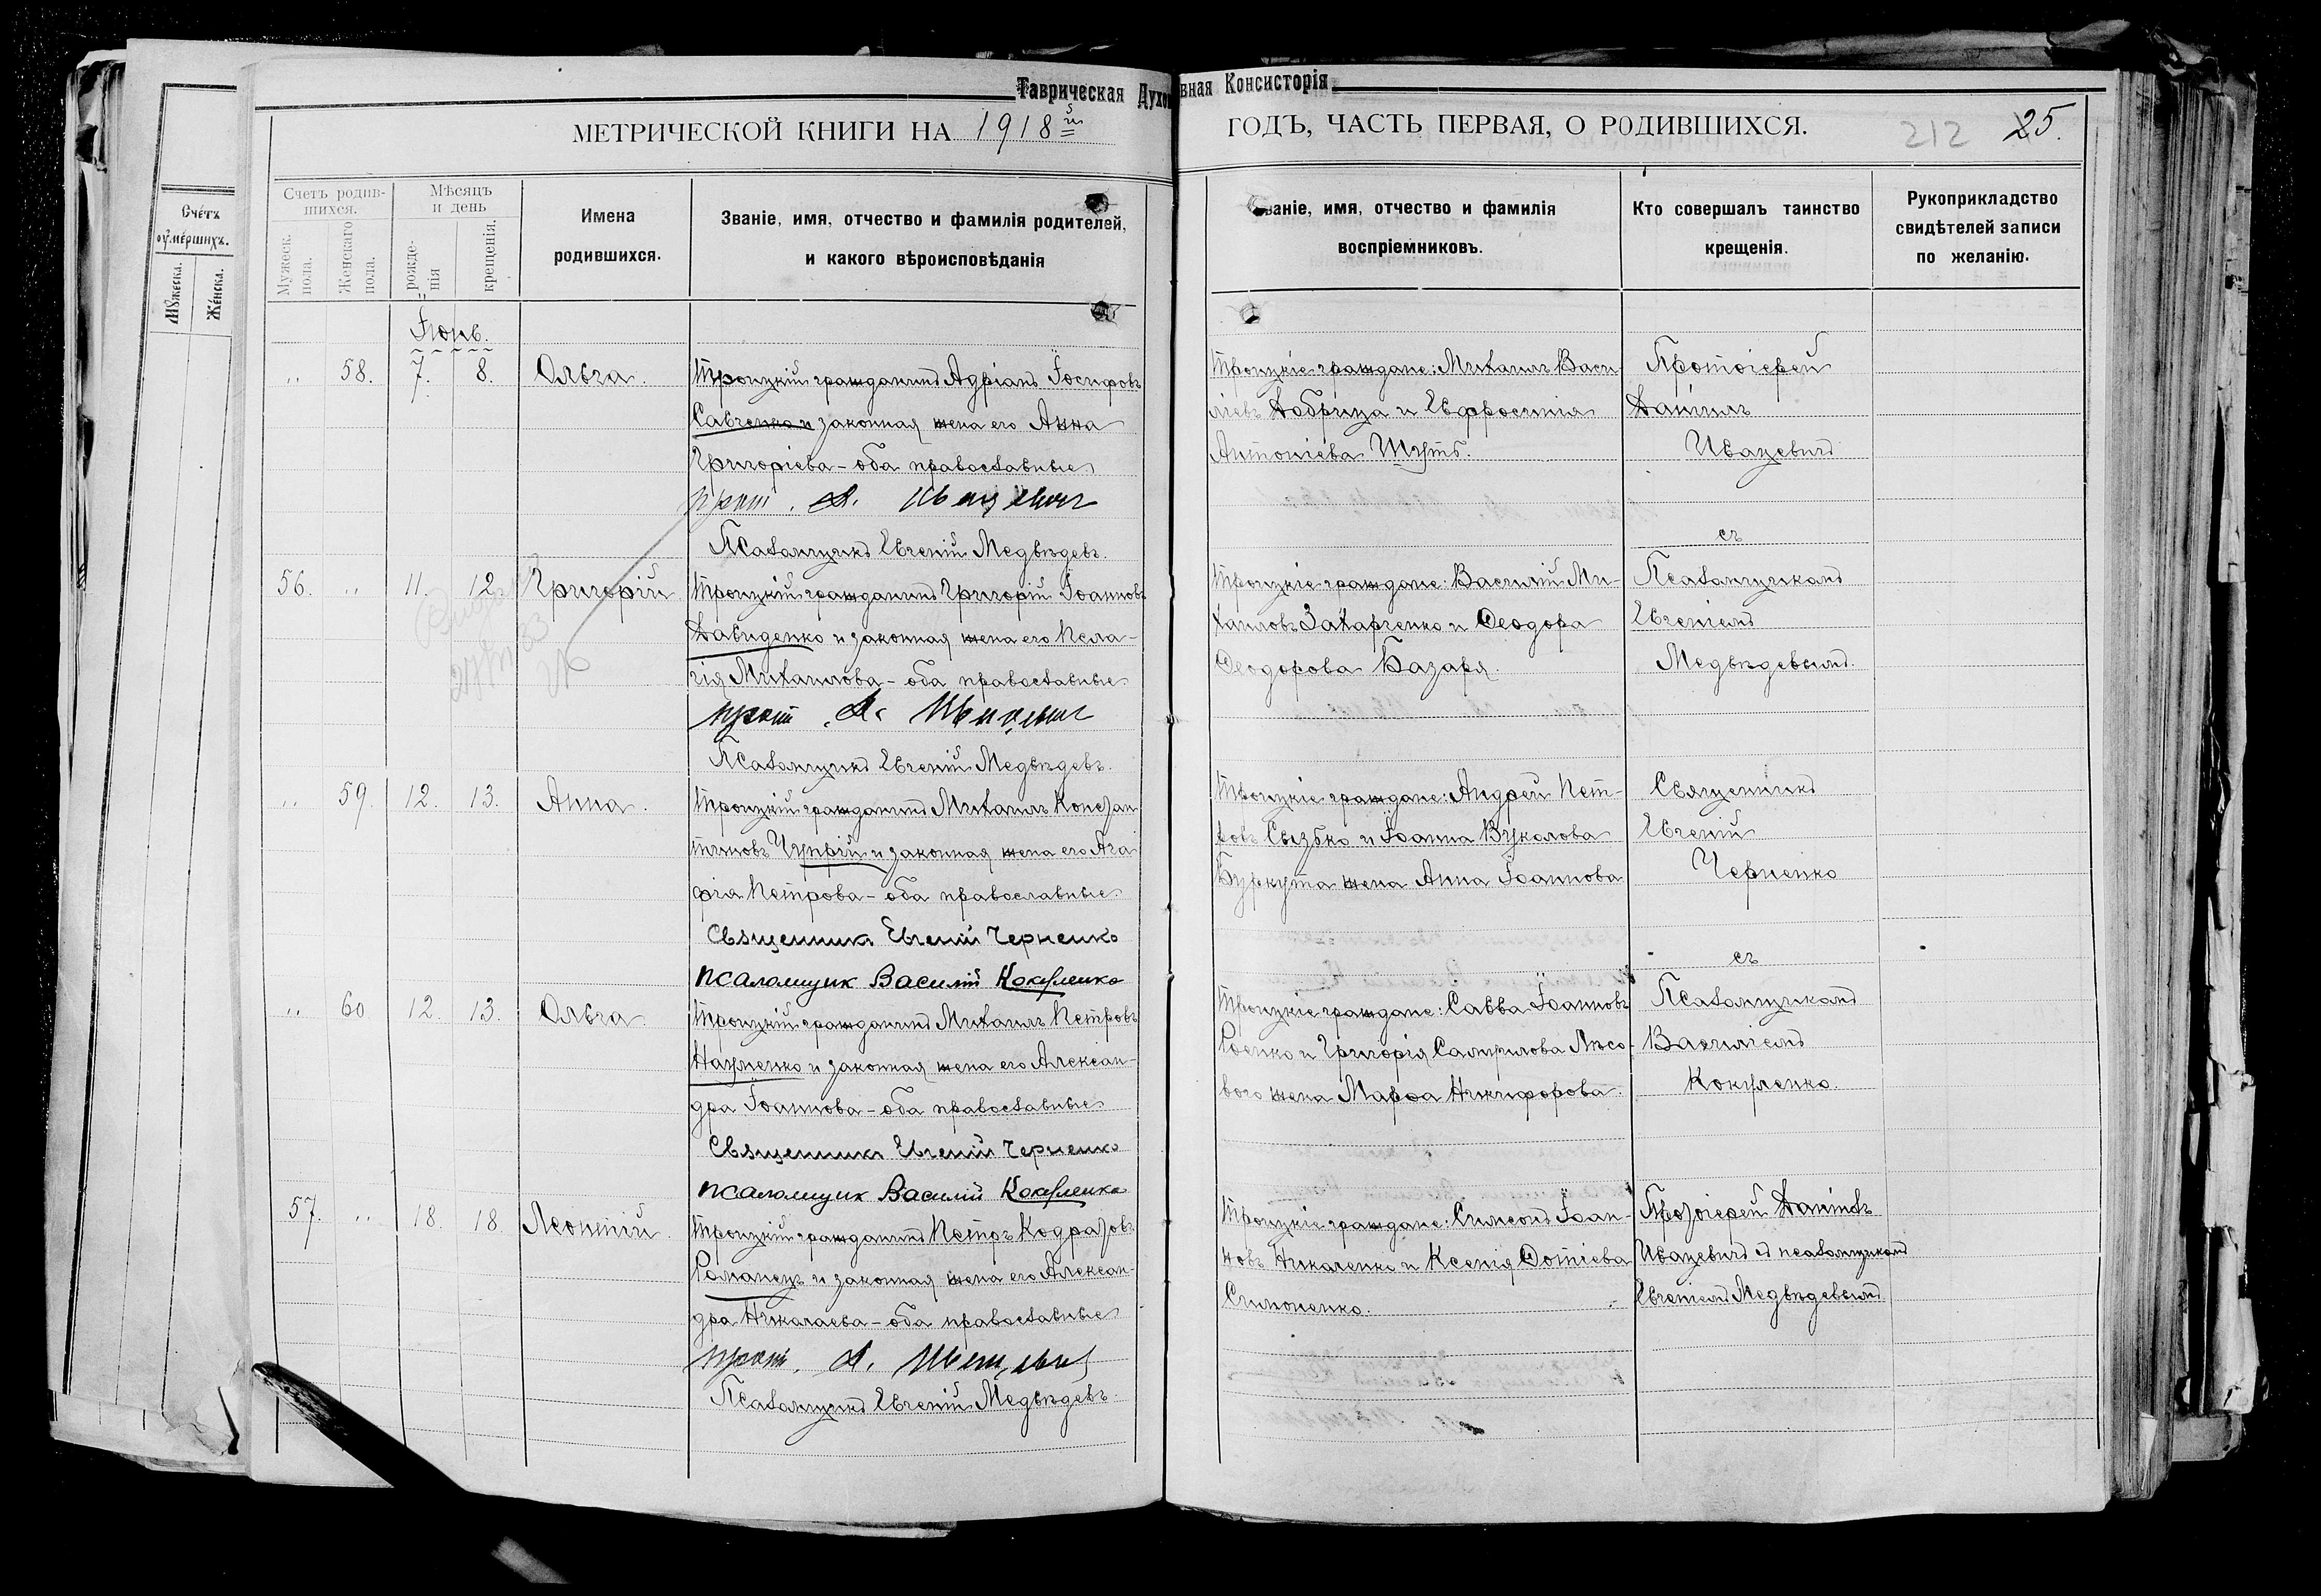 Таврическая Духовная Консисторія
МЕТРИЧЕСКОЙ КНИГИ НА 1918й ГОДЪ, ЧАСТЬ ПЕРВАЯ, О РОДИВШИХСЯ.
212 25.
Счетъ
умершихъ.
Мужеска.
Женска.
Счетъ родив-
шихся.
Мужеск.
пола.
Женскаго
пола.
Мѣсяцъ
и день
рожде-
нія
крещенія.
Имена
родившихся.
Званіе, имя, отчество и фамилія родителей,
и какого вѣроисповѣданія
Званіе, имя, отчество и фамилія
воспріемниковъ.
Кто совершалъ таинство
крещенія.
Рукоприкладство
свидѣтелей записи
по желанію.
Іюнь.
„ 58. 7. 8. Ольга.
Троицкій гражданинъ Адріанъ Іосифовъ
Савченко и законная жена его Анна
Григоріева – оба православные
прот. Д. Ивацевич
Псаломщикъ Евгеній Медвѣдевъ.
Троицкіе граждане: Михаилъ Васи-
ліевъ Добрица и Евфросинія
Антоніева Шутъ.
Протоіерей
Даніилъ
Ивацевичъ
съ
56. „ 11. 12. Григорій
Троицкій гражданинъ Григорій Іоанновъ
Давиденко и законная жена его Пела-
гія Михаилова – оба православные
прот. Д. Ивацевич
Псаломщикъ Евгеній Медвѣдевъ.
Троицкіе граждане: Василій Ми-
хаиловъ Захарченко и Феодора
Феодорова Базаря.
Псаломщикомъ
Евгеніемъ
Медвѣдевымъ.
„ 59. 12. 13. Анна.
Троицкій гражданинъ Михаилъ Констан
тиновъ Чупрій и законная жена его Ага
фія Петрова – оба православные.
Священникъ Евгеній Черненко
псаломщик Василій Кокуленко
Троицкіе граждане: Андрей Пет-
ровъ Свызбко и Іоанна Вуколова
Буркута жена Анна Іоаннова
Священникъ
Евгеній
Черненко
съ
„ 60 12. 13. Ольга
Троицкій гражданинъ Михаилъ Петровъ
Науменко и законная жена его Алексан-
дра Іоаннова – оба православные
Священникъ Евгеній Черненко
псаломщик Василій Кокуленко
Троицкіе граждане: Савва Іоанновъ
и Григорія Самуилова Лѣсо-
вого жена Марфа Никифорова.
Псаломщикомъ
Василіемъ
Кокуленко.
57. „ 18. 18. Леонтій.
Троицкій гражданинъ Петръ Кодратовъ
Романецъ и законная жена его Алексан-
дра Николаева – оба православные
прот. Д. Ивацевич
Псаломщикъ Евгеній Медвѣдевъ.
Троицкіе граждане: Симеонъ Іоан-
новъ Николенко и Ксенія Фотіева
Симоненко.
Протоіерей Даніилъ
Ивацевичъ съ псаломщикомъ
Евгеніемъ Медвѣдевымъ